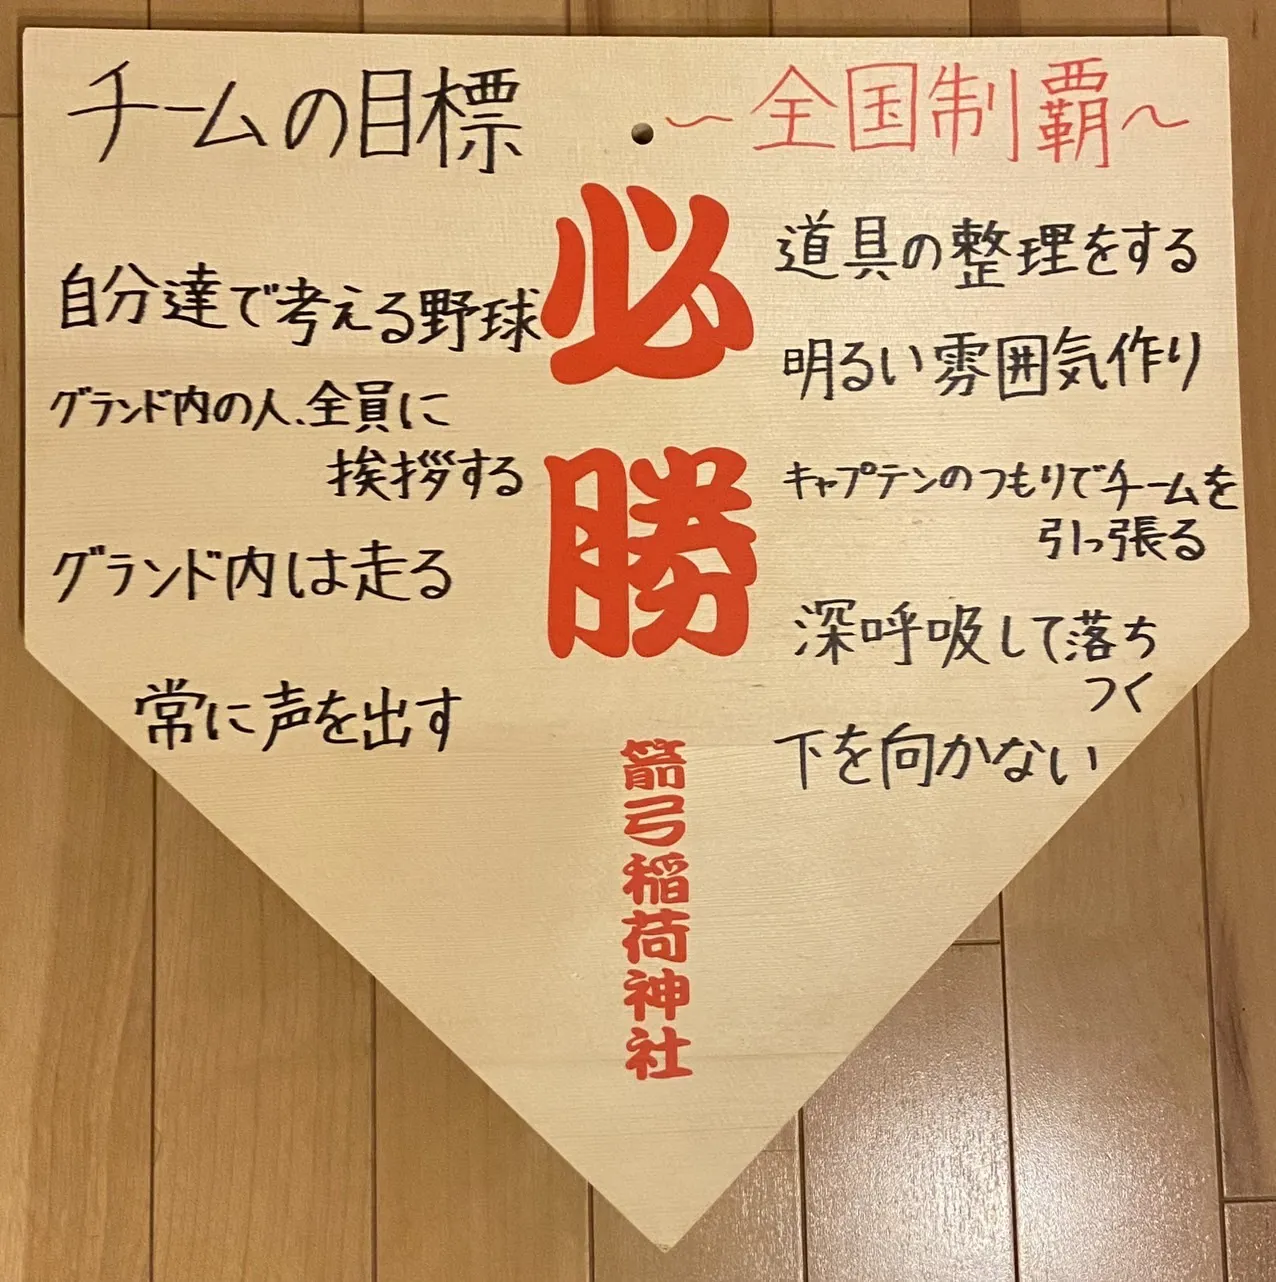 チームの目標
〜全国制覇〜
自分達で考える野球
グランド内の人、全員に
挨拶する
グランド内は走る
常に声を出す
必勝
箭弓稲荷神社
道具の整理をする
明るい雰囲気作り
キャプテンのつもりでチームを
引っ張る
深呼吸して落ち
つく
下を向かない